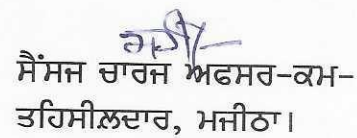 ਸੈਂਸਜ ਚਾਰਜ ਅਫਸਰ-ਕਮ-
ਤਹਿਸੀਲਦਾਰ, ਮਜੀਠਾ।